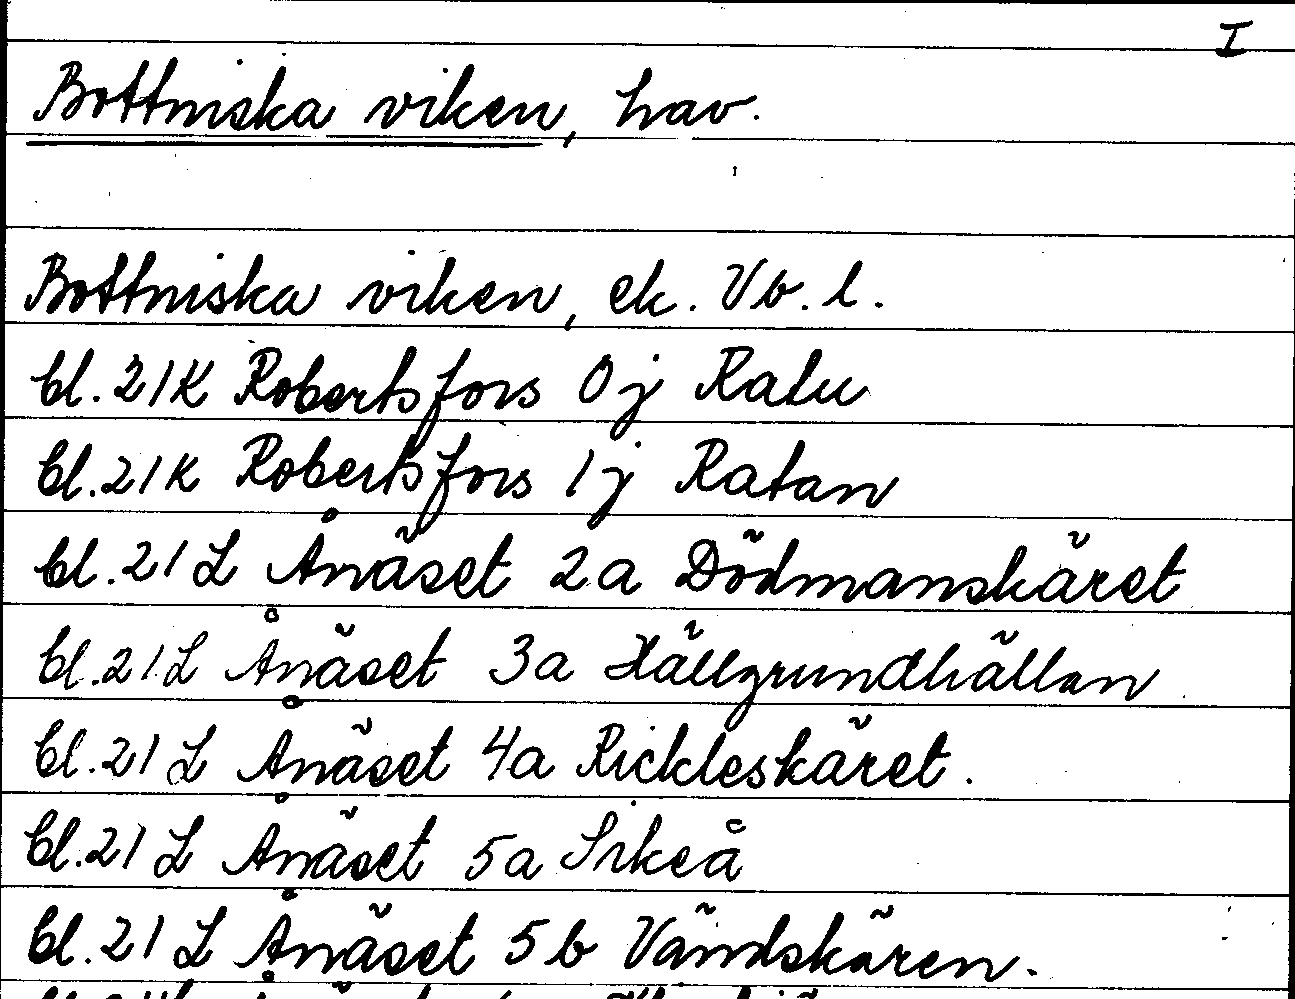 I
Bottniska viken, hav.
Bottniska viken, ek. Vb. l.
bl. 21K Robertsfors 0j Ratu
bl. 21K Robertsfors 1j Ratan
bl. 21L Ånäset 2a Dödmanskäret
bl. 21L Ånäset 3a Hällgrundhällan
bl. 21L Ånäset 4a Rickleskäret.
bl. 21L Ånäset 5a Sikeå
bl. 21L Ånäset 5b Vändskären.